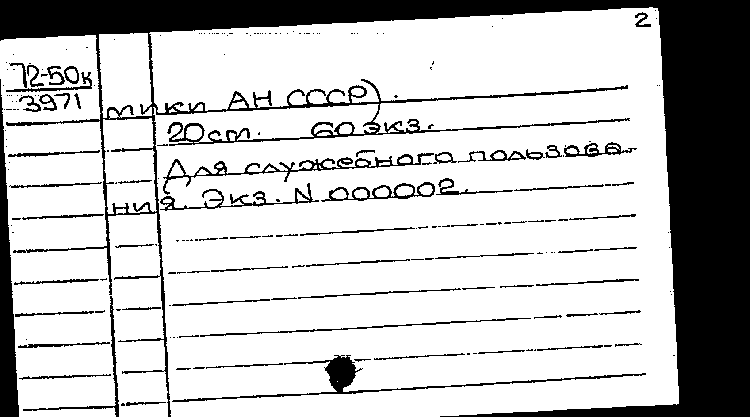 2
72-50к
3971
мики АН СССР).
20 см. 60 экз.
Для служебного пользова-
ния. Экз. N 000002.